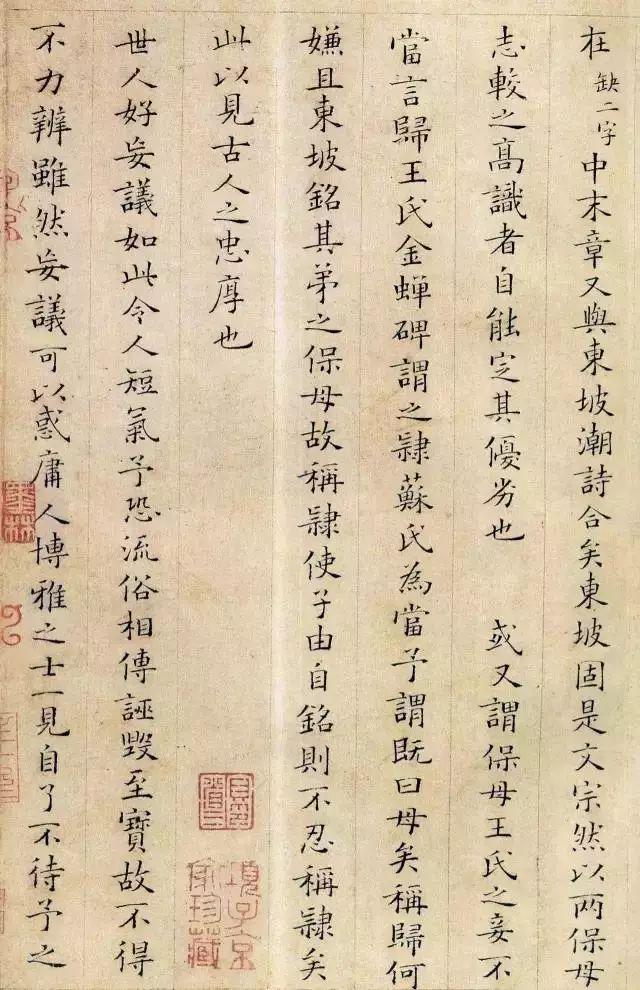 在缺二字中末章又與東坡潮詩合矣東坡固是文宗然以两保母
志較之髙識者自能定其優劣也 或又謂保母王氏之妾不
當言歸王氏金蝉碑謂之隷蘇氏為當予謂既曰母矣稱歸何
嫌且東坡銘其弟之保母故稱隷使子由自銘則不忍稱隷矣
此以見古人之忠厚也
項子京
家珍藏
世人好妄議如此令人短氣予恐流俗相傳誣毀至寶故不得
不力辨雖然妄議可以惑庸人博雅之士一見自了不待予之
墨林